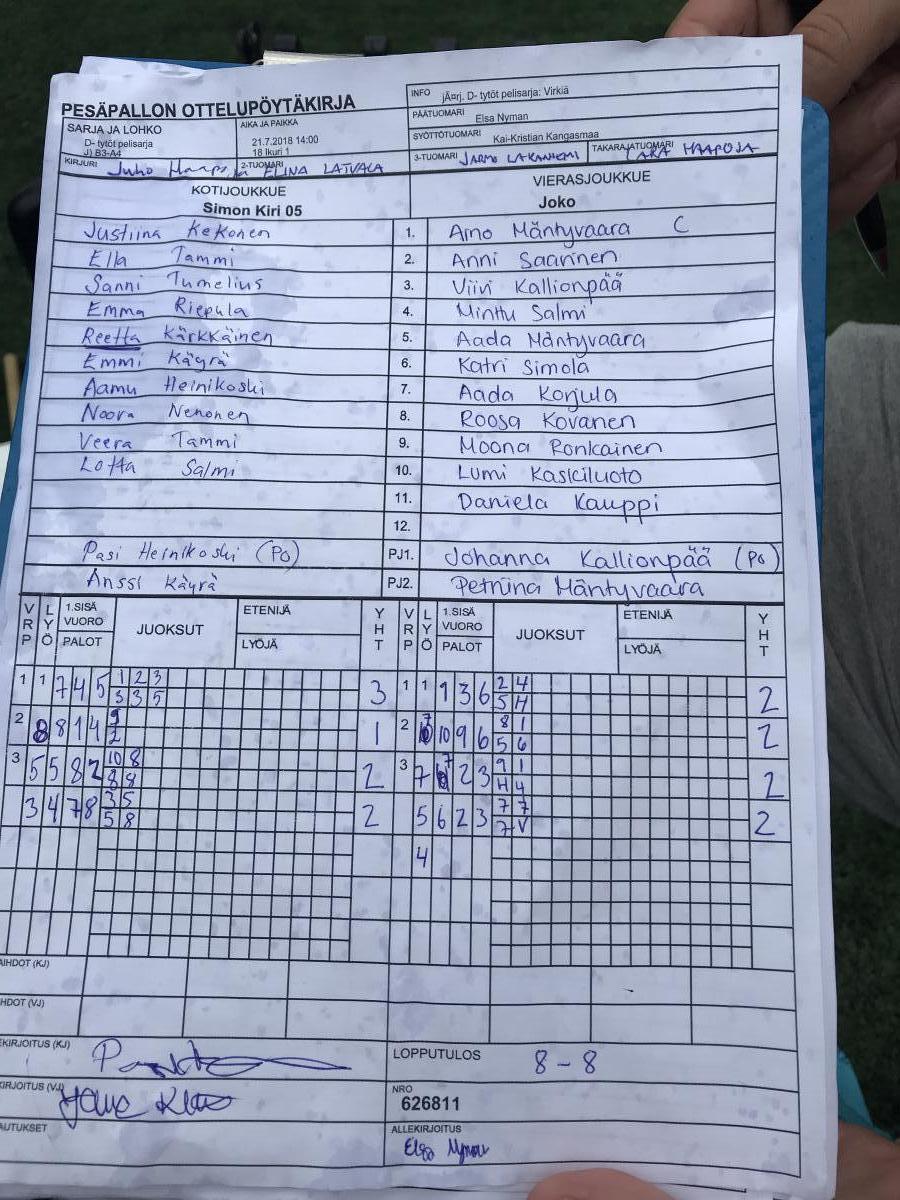 PESÄPALLON OTTELUPÖYTÄKIRJA
INFO järj. D- tytöt pelisarja: Virkiä
PÄÄTUOMARI Elsa Nyman
SYÖTTÖTUOMARI Kai-Kristian Kangasmaa
SARJA JA LOHKO
D- tytöt pelisarja
J) B3-A4
AIKA JA PAIKKA
21.7.2018 14:00
18 Ikuri 1
KIRJURI Juho
2-TUOMARI ELINA LATVALA
3-TUOMARI JARMO
TAKARAJATUOMARI HAAPOJA
KOTIJOUKKUE
Simon Kiri 05
VIERASJOUKKUE
Joko
Justiina Kekonen 1. Aino Mäntyvaara C
Ella Tammi 2. Anni Saarinen
Sanni Tumelius 3. Viivi Kallionpää
Emma Riepula 4. Minttu Salmi
Reetta Kärkkäinen 5. Aada Mäntyvaara
Emmi Käyrä 6. Katri Simola
Aamu Heinikoski 7. Aada Korjula
Noora Nenonen 8. Roosa Kovanen
Veera Tammi 9. Moona Ronkainen
Lotta Salmi 10. Lumi Kasiciluoto
11. Daniela Kauppi
12.
Pasi Heinikoski (Po) PJ1. Johanna Kallionpää (Po)
Anssi Käyrä PJ2. Petriina Mäntyvaara
VRP LYÖ 1.SISÄ VUORO PALOT JUOKSUT ETENIJÄ LYÖJÄ YHT VRP LYÖ 1.SISÄ VUORO PALOT JUOKSUT ETENIJÄ LYÖJÄ YHT
1 1 7 4 5 1 2 3 3 1 1 9 3 6 2 4 2
3 3 5 5 4
2 8 8 1 4 9 1 2 10 9 6 8 1 2
2 5 6
3 5 5 8 2 10 8 2 3 7 2 3 9 1 2
8 8 4 4
3 4 7 8 3 5 2 5 6 2 3 7 7 2
5 8 7 V
4
AIHDOT (KJ)
HDOT (VJ)
EKIRJOITUS (KJ)
LOPPUTULOS 8-8
KIRJOITUS (VJ)
NRO
626811
AUTUKSET
ALLEKIRJOITUS
Elsa Nyman